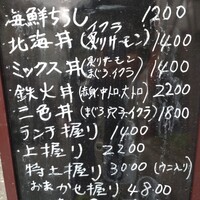 海鮮ちらし 1200
・北海丼(イクラ 炙りサーモン) 1400
・ミックス丼(炙りサーモン まぐろ、イクラ) 1400
・鉄火丼(赤身、中トロ、大トロ) 2200
二色丼(まぐろ、穴子、イクラ) 1800
ランチ握り 1400
・上握り 2200
特上握り 3000(ウニ入り)
おまかせ握り 4800